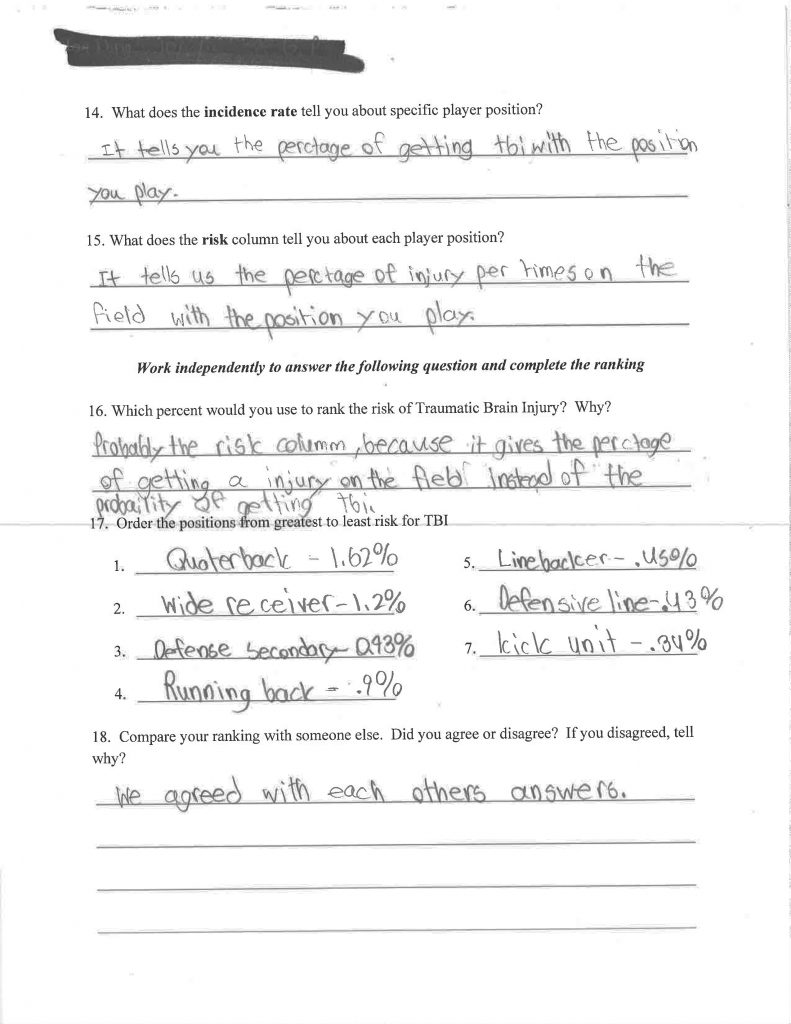 14. What does the incidence rate tell you about specific player position?
It tells you the perctage of getting tbi with the position
you play.
15. What does the risk column tell you about each player position?
It tells us the perctage of injury per times on the
field with the position you play.
Work independently to answer the following question and complete the ranking
16. Which percent would you use to rank the risk of Traumatic Brain Injury? Why?
Probably the risk columm, because it gives the perctage
of getting a injury on the fieb instead of the
probaility of getting tbi.
17. Order the positions from greatest to least risk for TBI
1. Quaterback - 1.62%
2. Wide receiver - 1.2%
3. Defense secondary - 0.93%
4. Running back - .9%
5. Linebacker - .45%
6. Defensive line - .43%
7. kick unit - .34%
18. Compare your ranking with someone else. Did you agree or disagree? If you disagreed, tell
why?
We agreed with each others answers.